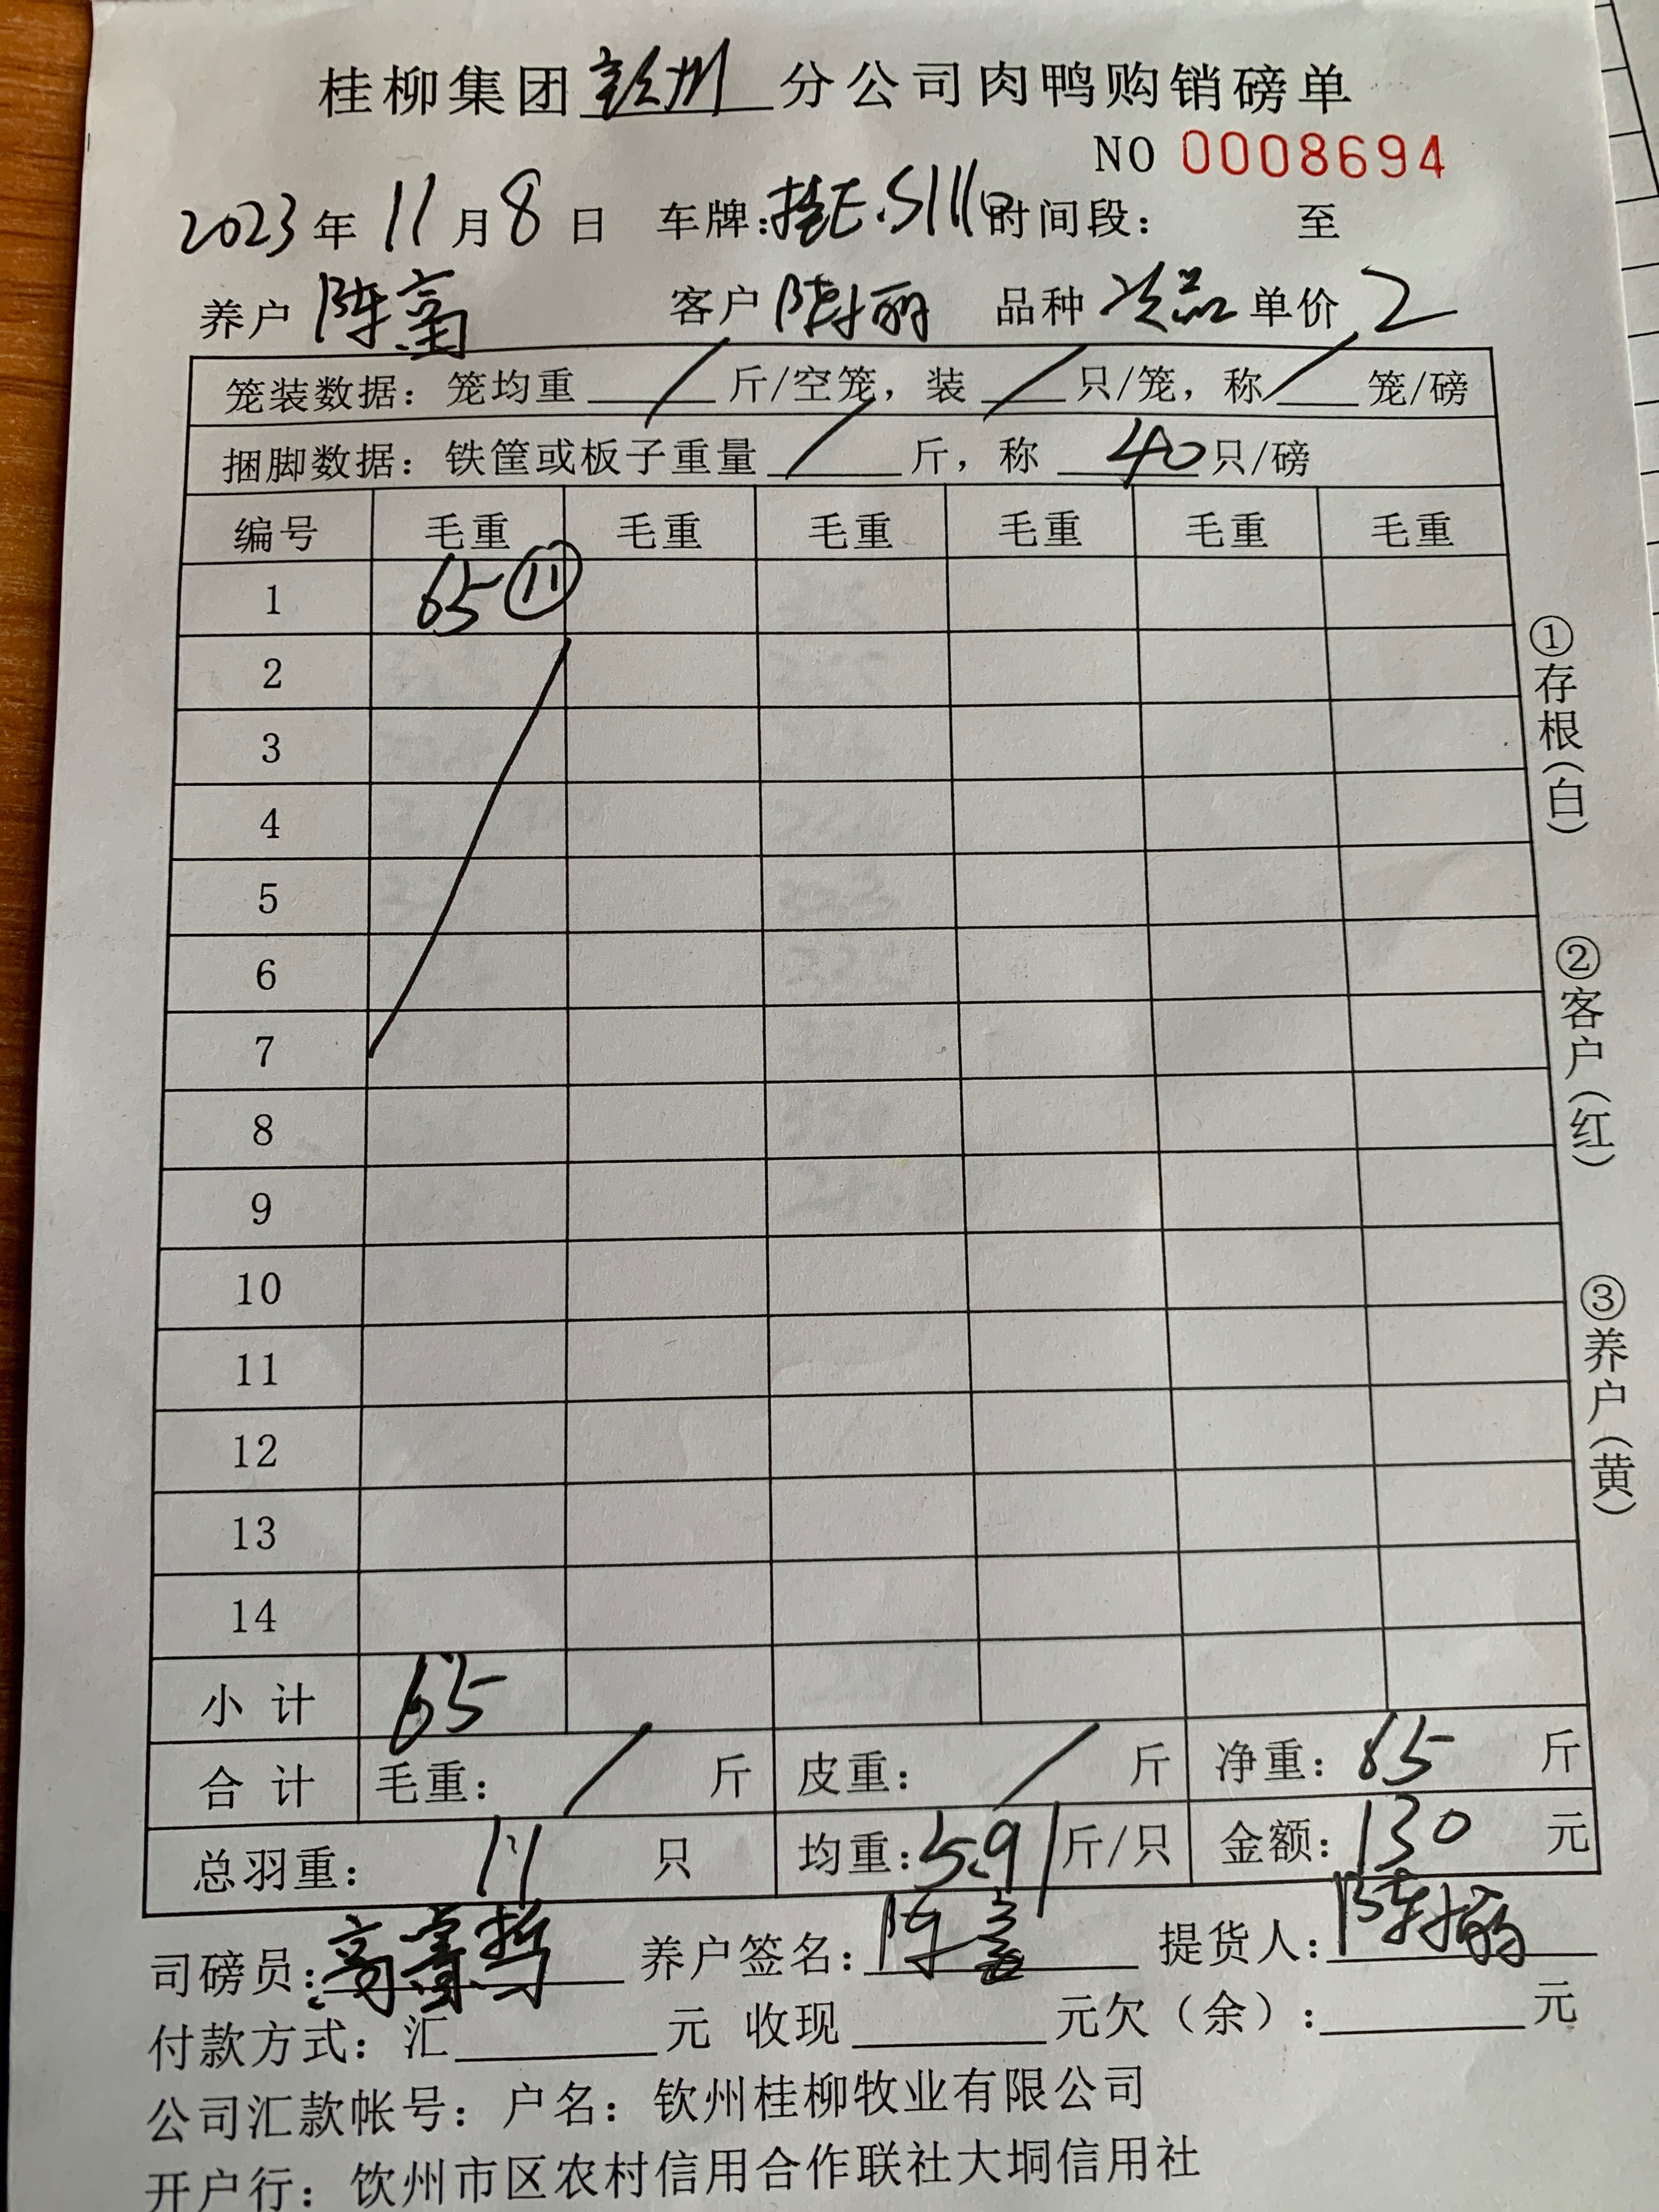 桂柳集团钦州分公司肉鸭购销磅单
NO 0008694
2023年11月8日 车牌:桂E·S111 时间段: 至
养户 陈 客户 陈丽 品种 次品 单价 2
笼装数据:笼均重 / 斤/空笼,装 / 只/笼,称 / 笼/磅
捆脚数据:铁筐或板子重量 / 斤,称 40 只/磅
编号 毛重 毛重 毛重 毛重 毛重 毛重
1 65 ⑪
2
3
4
5
6
7
8
9
10
11
12
13
14
小计 65
合计 毛重: / 斤 皮重: / 斤 净重: 65 斤
总羽重: 11 只 均重: 5.91 斤/只 金额: 130 元
司磅员: 养户签名: 陈 提货人: 陈丽
付款方式:汇 元 收现 元欠(余): 元
公司汇款帐号:户名:钦州桂柳牧业有限公司
开户行:钦州市区农村信用合作联社大垌信用社
①存根(白)
②客户(红)
③养户(黄)